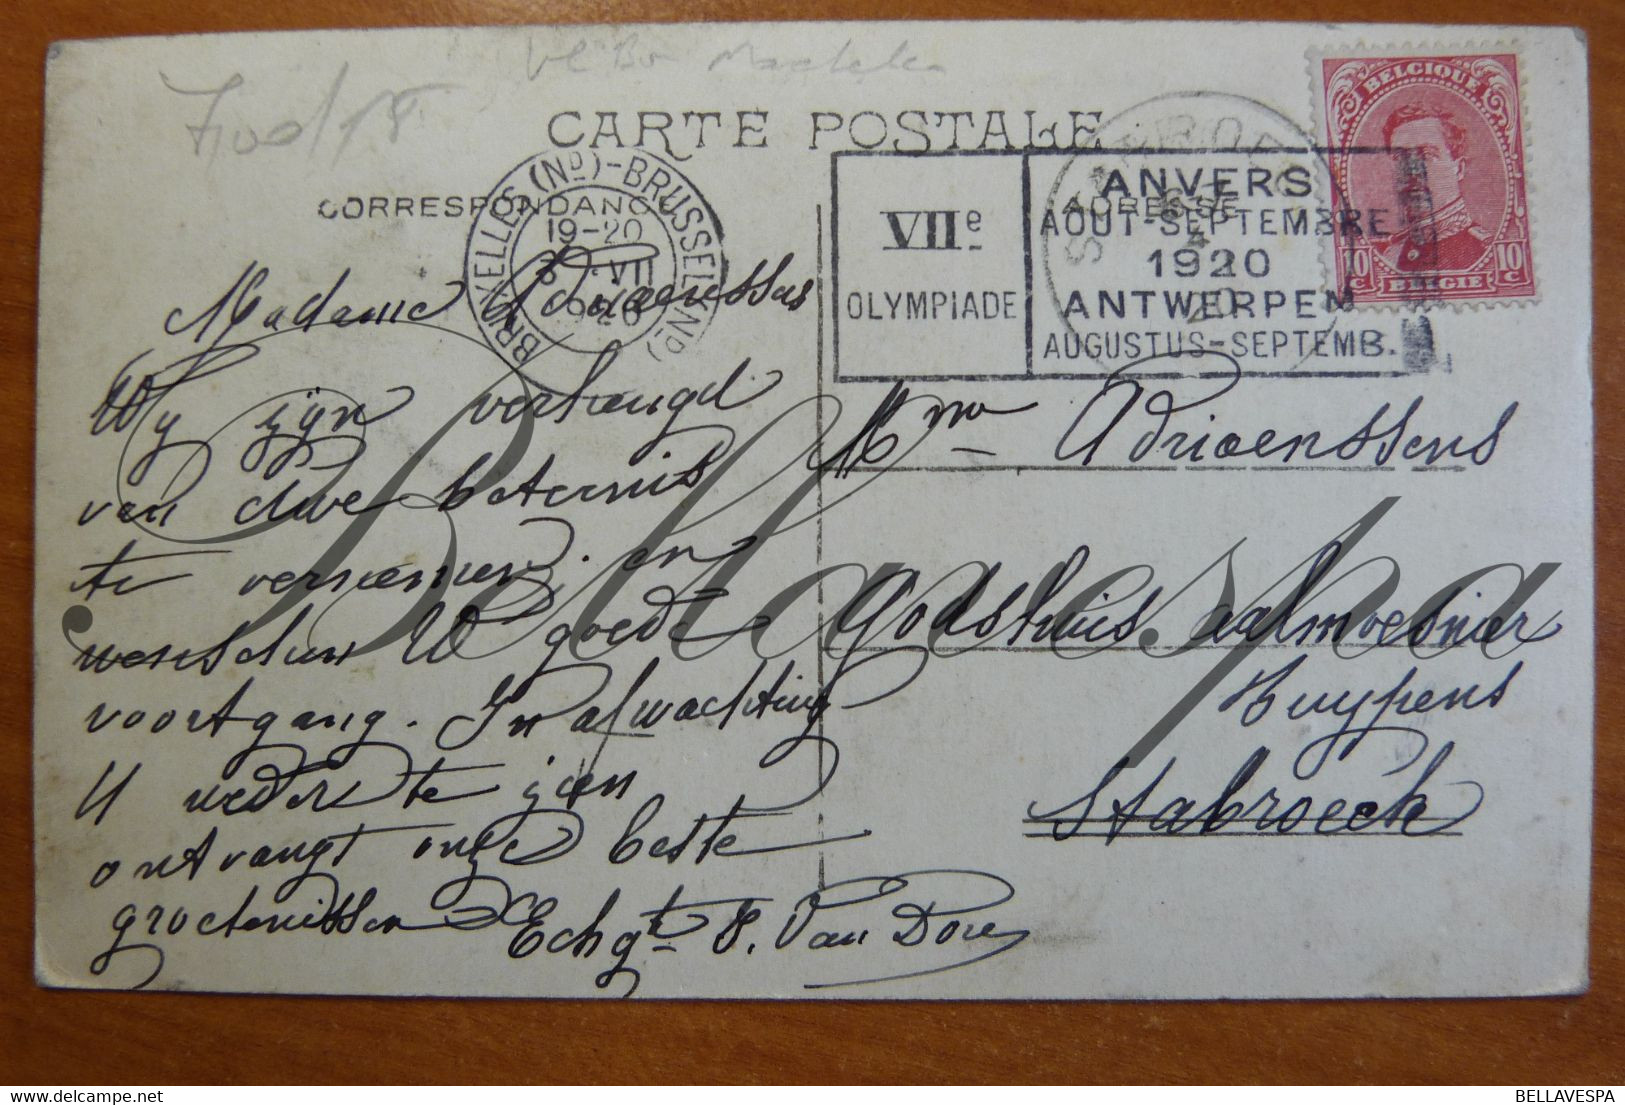 CARTE POSTALE
CORRESPONDANC
ADRESSE
BRUXELLES (ND)-BRUSSEL (ND)
19-20
VII
1920
STABROECK
4
VIIe
OLYMPIADE
ANVERS
AOUT-SEPTEMBRE
1920
ANTWERPEN
AUGUSTUS-SEPTEMB.
BELGIQUE
10 c
10 c
BELGIE
Madame Adriaenssens
Wy zijn verheugd
van uwe beternis
te vernemen en
wenschen U goede
voortgang. In afwachting
U weder te zien
ontvangt onze beste
groetenissen Echgte F. Van Dore
Mme Adriaenssens
Godshuis aalmoesnier
Huypens
Stabroeck
Bellavespa
BELLAVESPA